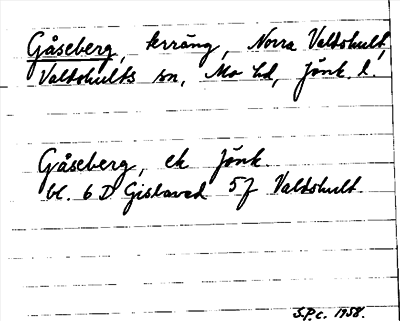 Gåseberg, terräng, Norra Valdshult,
Valdshults sn, Mo hd, Jönk. l.
Gåseberg, ek Jönk.
bl. 6 D Gislaved 5 f Valdshult.
S.P.c. 1958.